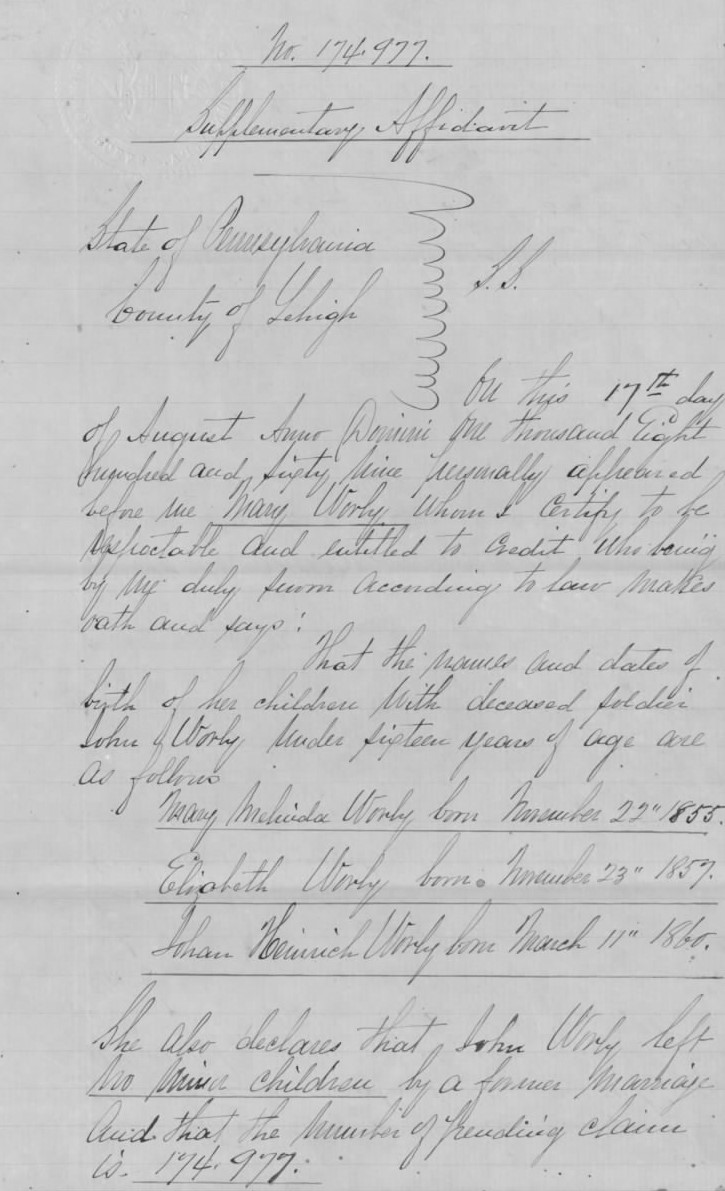 No. 174.977.
Supplementary Affidavit
State of Pennsylvania
County of Lehigh
S.S.
On this 17th day
of August Anno Domini One thousand Eight
hundred and sixty nine personally appeared
before me Mary Worly whom I certify to be
respectable and entitled to credit who being
by me duly sworn according to law makes
oath and says:
That the names and dates of
birth of her children with deceased soldier
John Worly under sixteen years of age are
as follows
Mary Melinda Worly born November 22" 1855.
Elizabeth Worly born. November 23" 1857.
Johan Heinrich Worly born March 11" 1860.
She also declares that John Worly left
no minor children by a former marriage
And that the number of pending claim
is. 174.977.